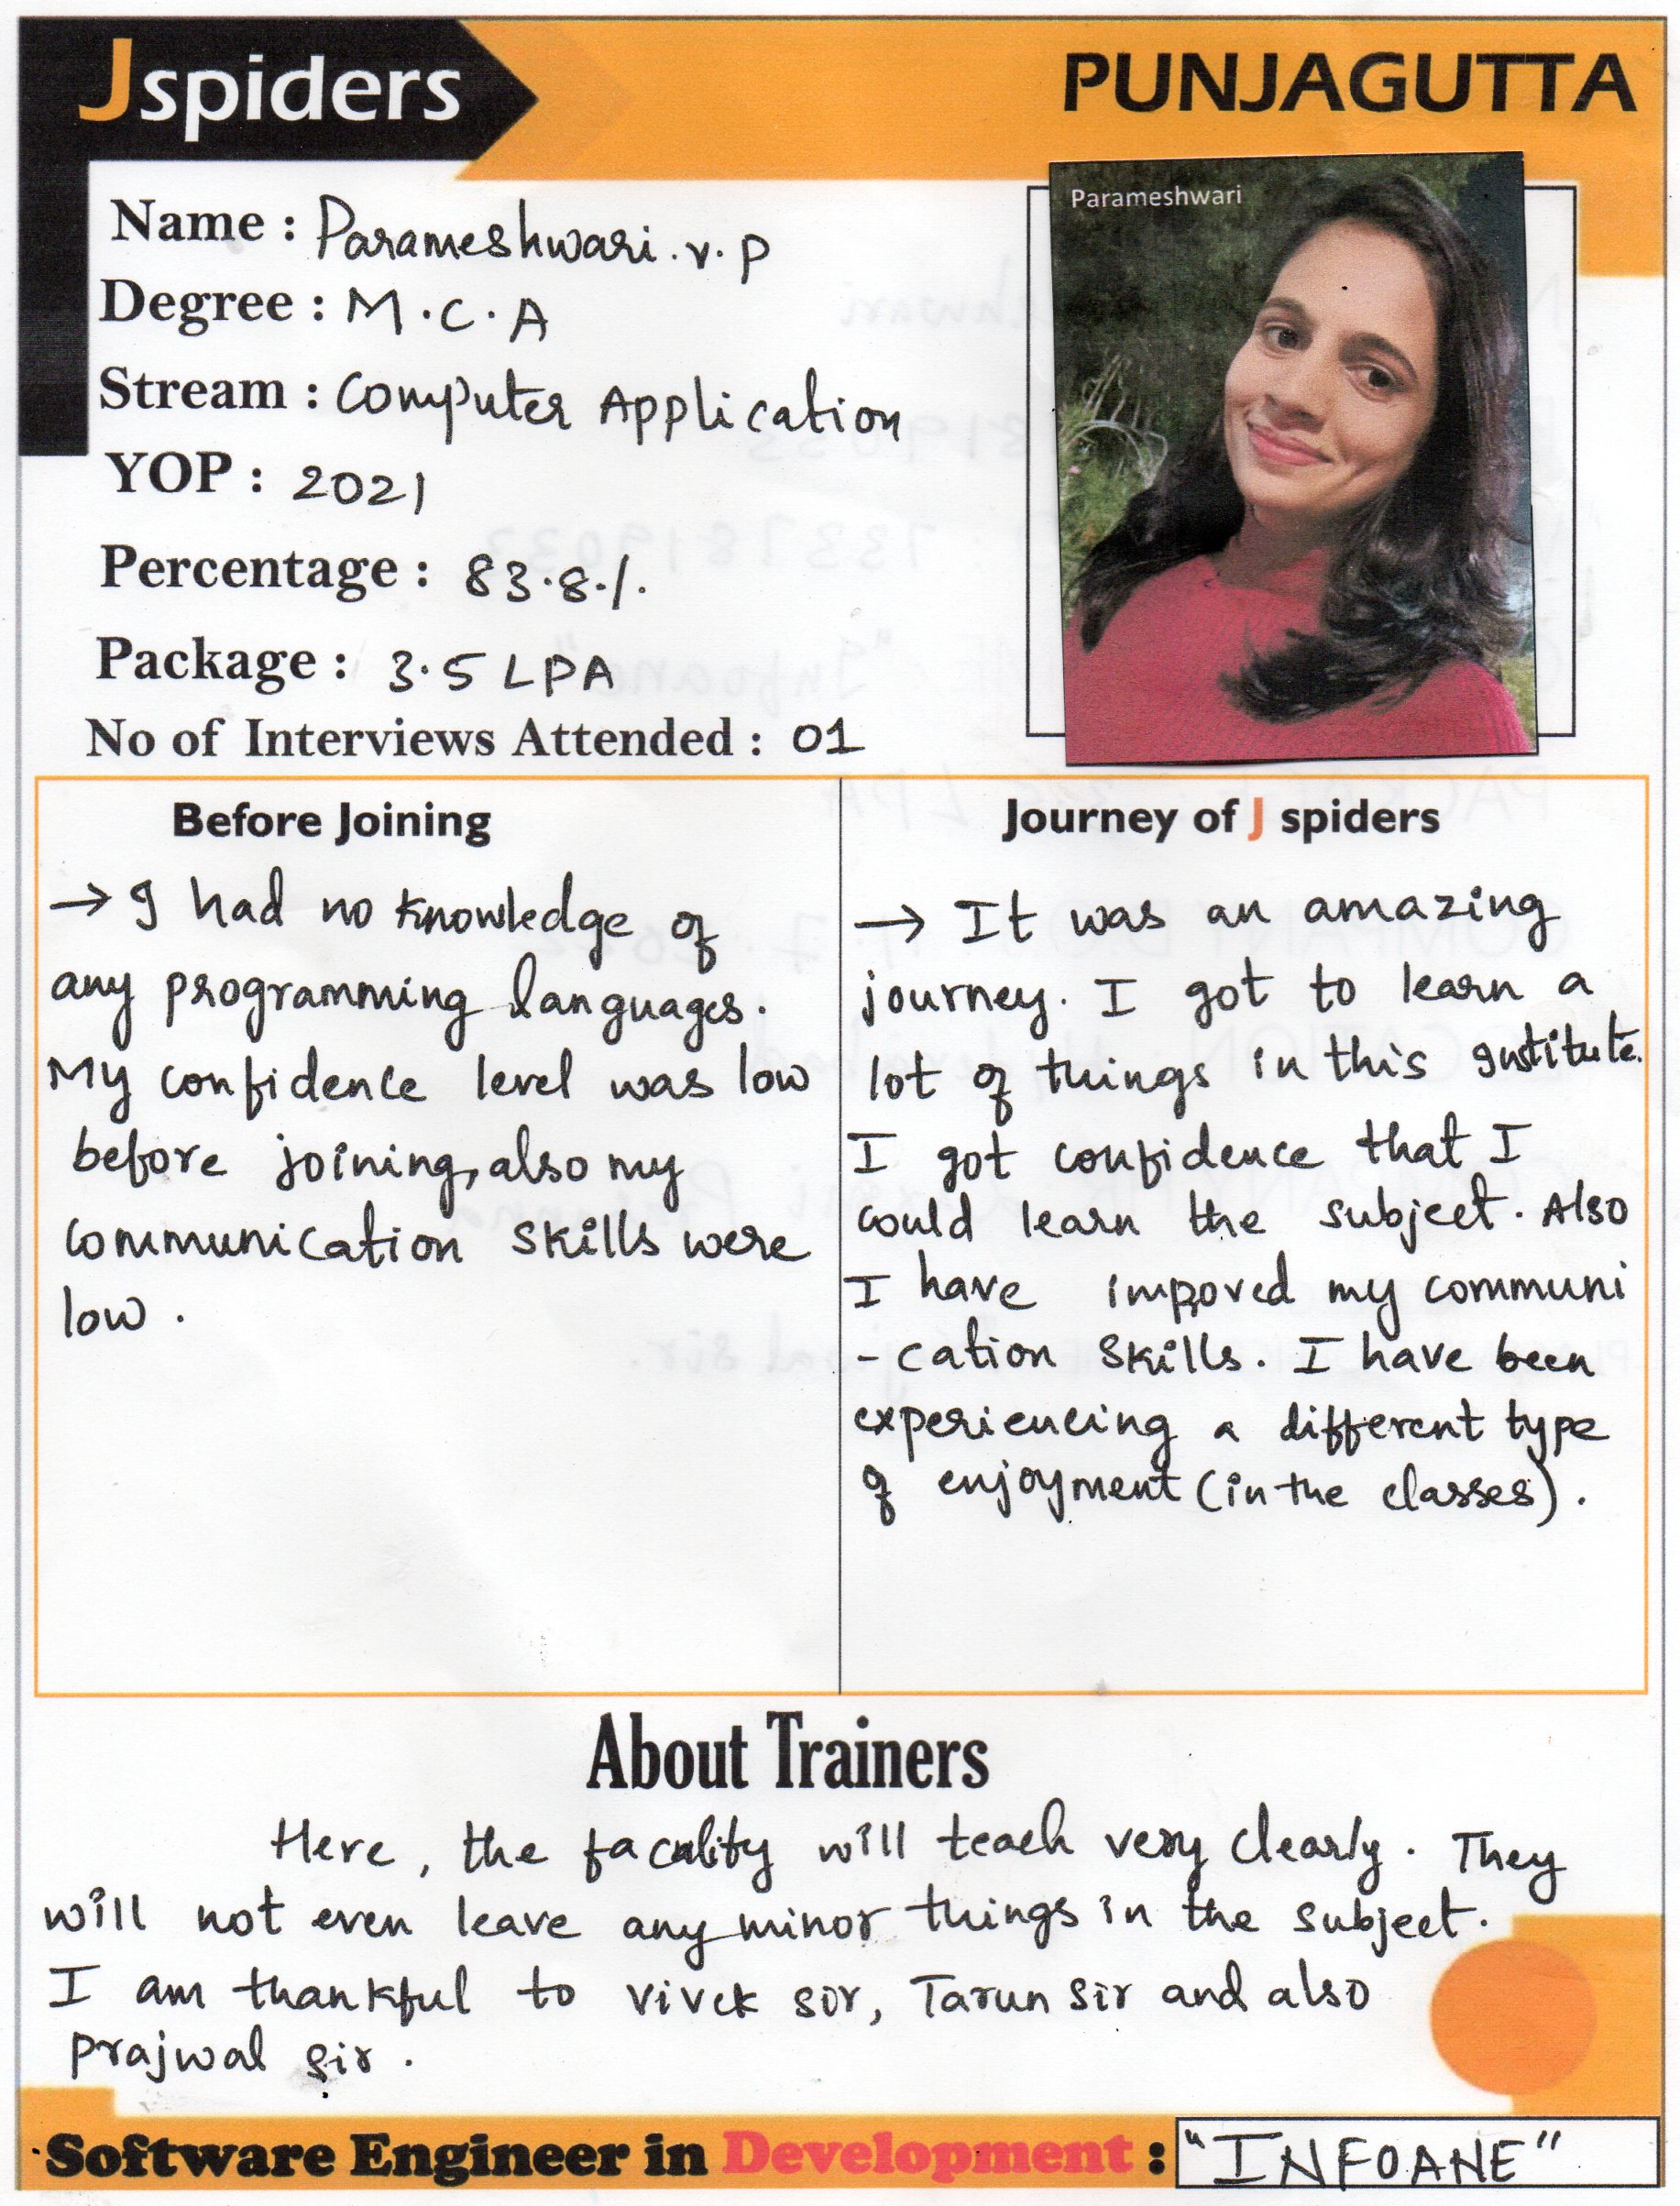 Jspiders
PUNJAGUTTA
Parameshwari
Name : Parameshwari.v.p
Degree : M.C.A
Stream : Computer Application
YOP : 2021
Percentage : 83.8.%
Package : 3.5 LPA
No of Interviews Attended : 01
Before Joining
→ I had no knowledge of
any programming languages.
My confidence level was low
before joining, also my
communication skills were
low .
Journey of J spiders
→ It was an amazing
journey. I got to learn a
lot of things in this Institute.
I got confidence that I
could learn the subject. Also
I have impoved my communi
-cation skills. I have been
experiencing a different type
of enjoyment (in the classes).
About Trainers
Here, the facality will teach very clearly. They
will not even leave any minor things in the subject.
I am thankful to vivek sir, Tarun sir and also
prajwal sir .
Software Engineer in Development : "INFOANE"